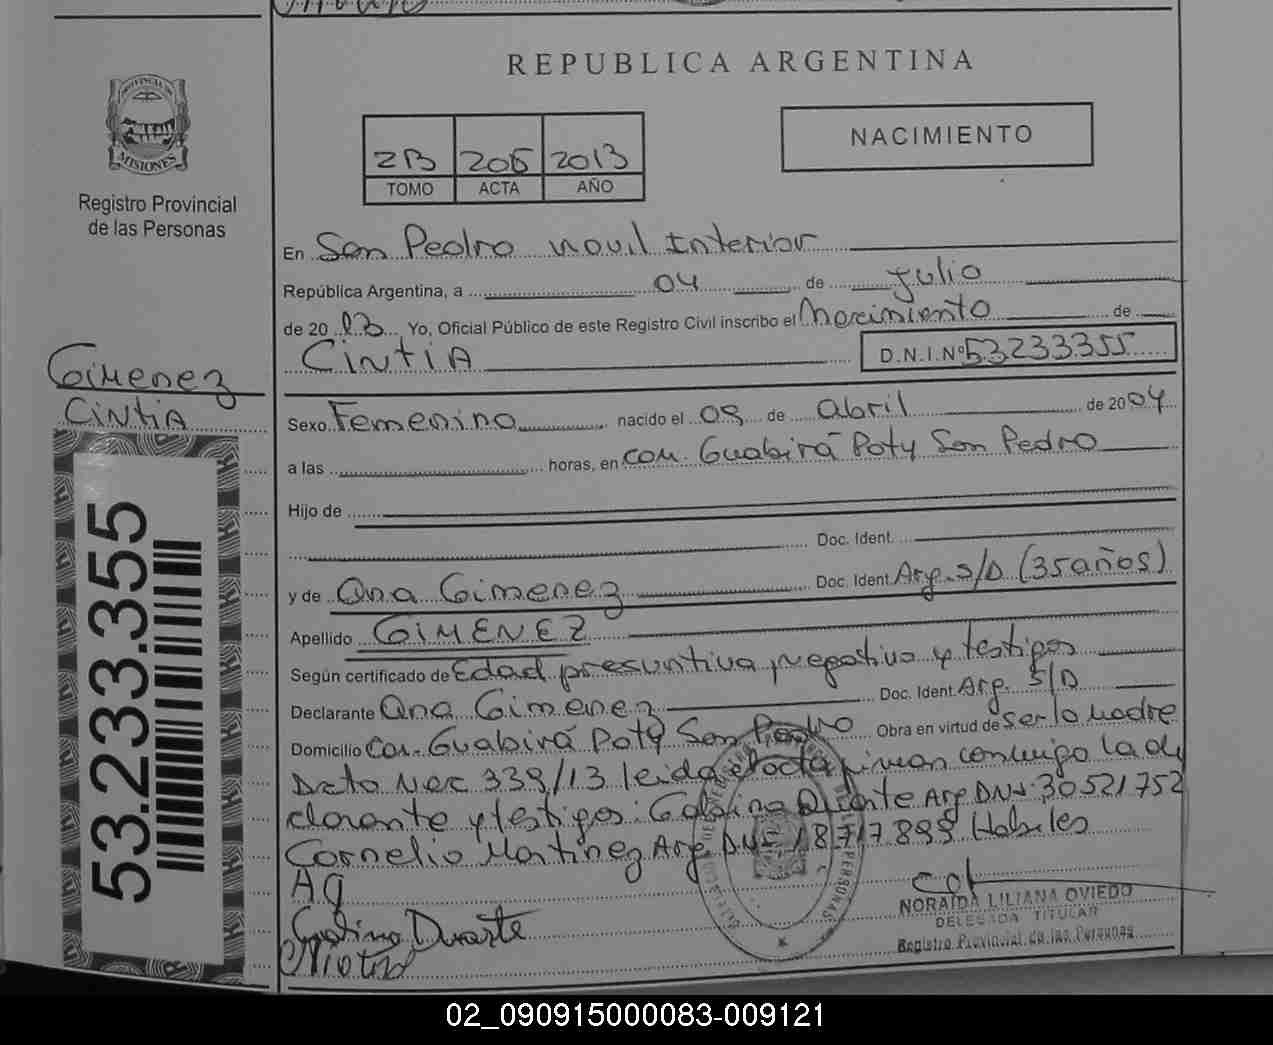 REPUBLICA ARGENTINA
PROVINCIA DE
MISIONES
Registro Provincial
de las Personas
2B 206 2013
TOMO ACTA AÑO
NACIMIENTO
En San Pedro Movil Interior
República Argentina, a 04 de Julio
de 2013 Yo, Oficial Público de este Registro Civil inscribo el Nacimiento de
CINTIA D.N.I.Nº 53233355
Gimenez
CINTIA
Sexo Femenino nacido el 09 de abril de 2004
a las horas, en com. Guabirá Poty San Pedro
Hijo de
Doc. Ident.
y de Ana Gimenez Doc. Ident. Arg. S/D (35 años)
Apellido GIMENEZ
Según certificado de Edad presuntiva, negativo y testigos
Declarante Ana Gimenez Doc. Ident. Arg. S/D
Domicilio Com. Guabirá Poty San Pedro Obra en virtud de ser la madre
Dcto Nac 339/13 leida el acta firman conmigo la de
clarante y testigos: Galvina Duarte Arg DNI 30521752
Cornelio Martinez Arg DNI 18717899 Habiles
AG
Duarte
NORAIDA LILIANA OVIEDO
DELEGADA TITULAR
Registro Provincial de las Personas
53.233.355
02_090915000083-009121